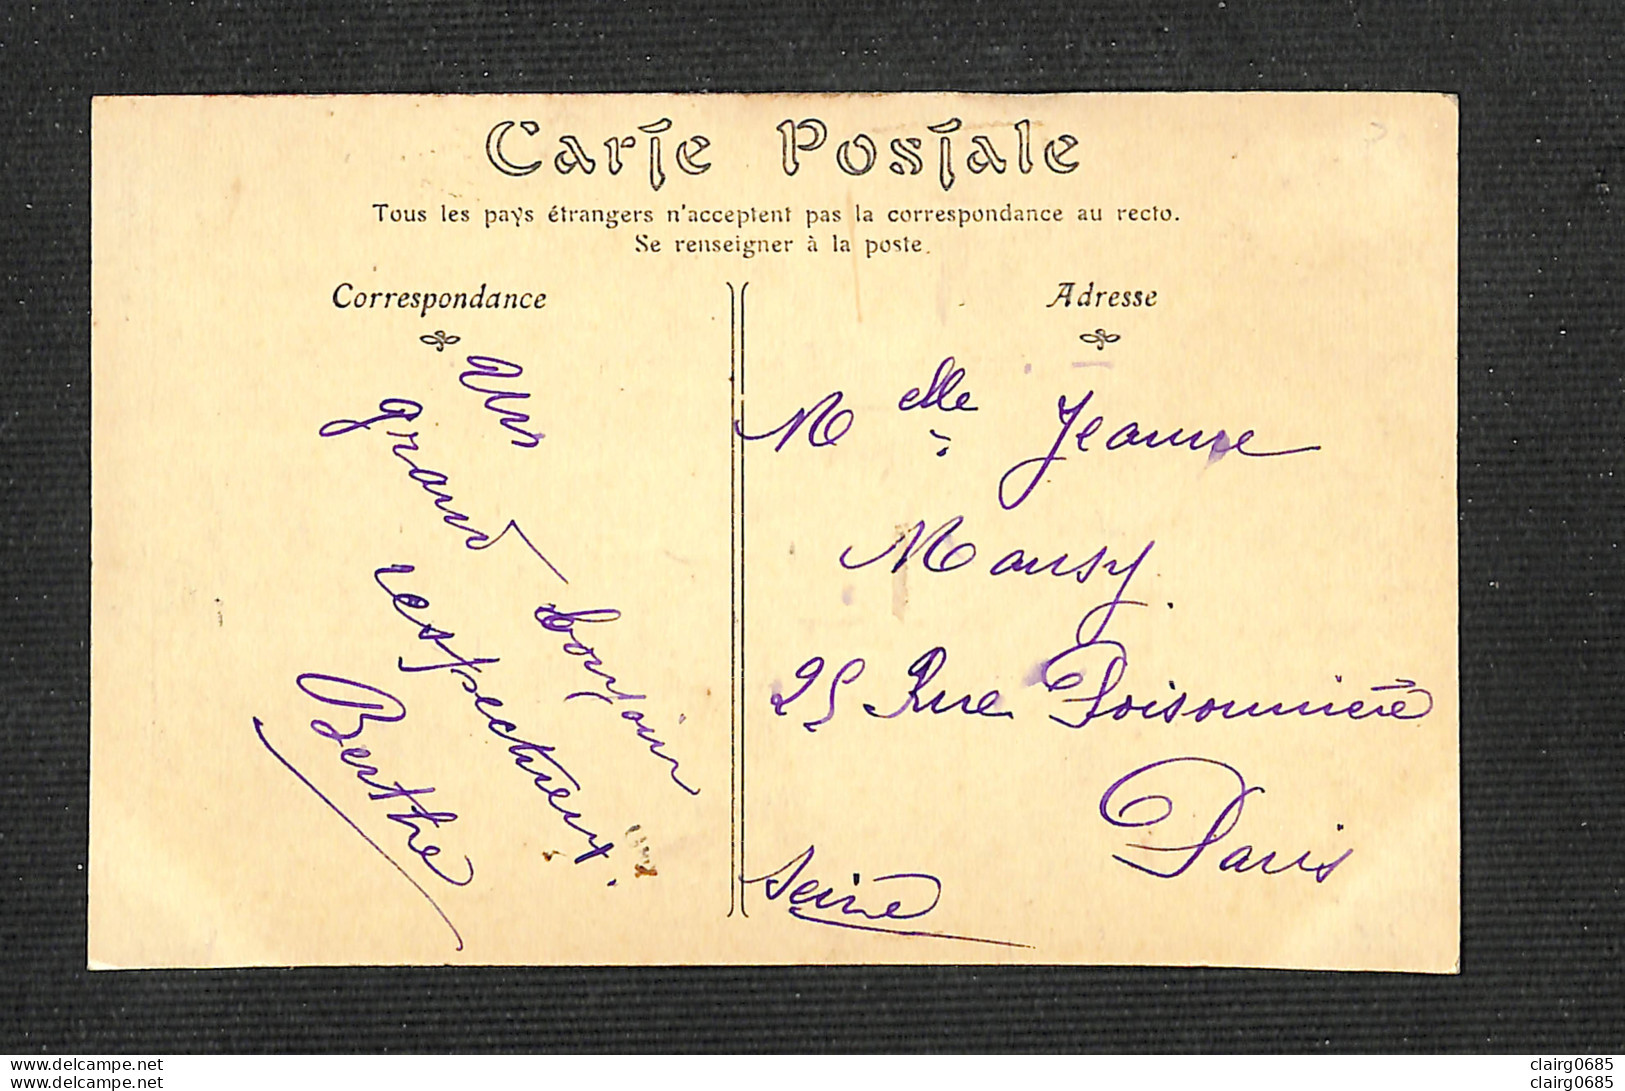 Carte Postale
Tous les pays étrangers n'acceptent pas la correspondance au recto.
Se renseigner à la poste.
Correspondance
Adresse
Un
grand bonjour
respectueux.
Berthe
Melle Jeanne
Mansy
25 Rue Poisonnière
Paris
Seine
www.delcampe.net
www.delcampe.net
clairg0685
clairg0685